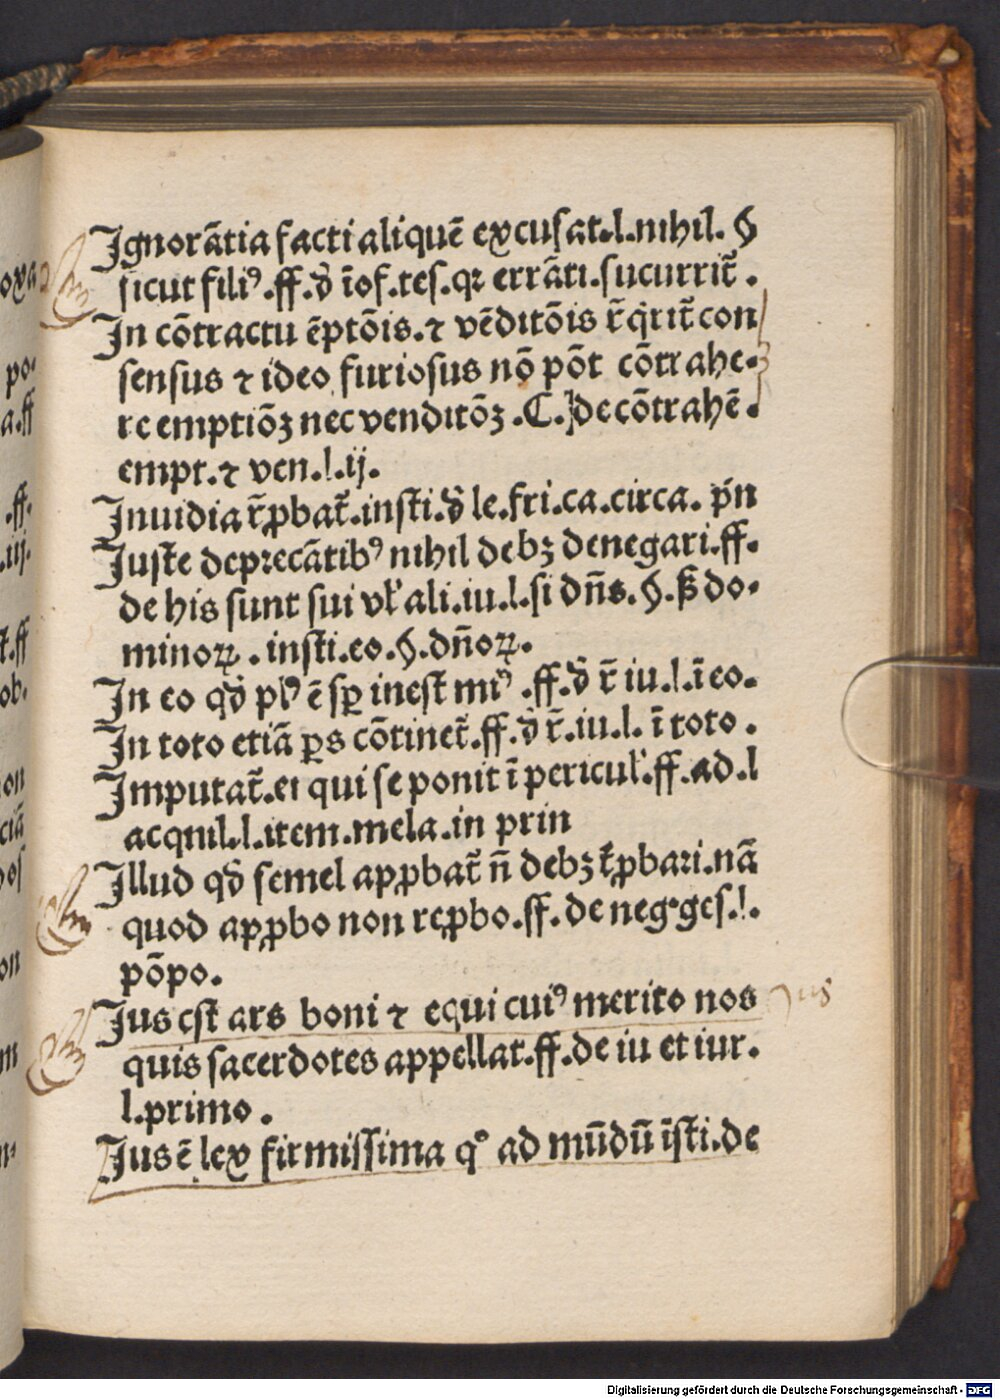 Ignorãtia facti aliquẽ excusat.l.nihil. §
sicut filiꝰ.ff.ð ĩof.tes.qꝛ errãti.sucurrit̃.
In cõtractu ẽptõis.⁊ vẽditõis r̃q̇rit̃ con
sensus ⁊ ideo furiosus nõ põt cõtrahe-
re emptiõꝫ nec venditõꝫ.C. de cõtrahẽ.
empt.⁊ ven.l.ij.
Inuidia r̃ꝓbat̃.insti.ð le.fri.ca.circa. p̃n
Juste deprecãtibꝰ nihil debꝫ denegari.ff.
de his sunt sui vl̉ ali.iu.l.si dñs.§.ß do-
minoꝝ. insti.eo.§.dñoꝝ.
In eo qð plꝰ ẽ sꝑ inest miꝰ.ff.ð r̃ iu.l.ĩ eo.
In toto etiã ꝑs cõtinet̃.ff.ð r̃.iu.l. ĩ toto.
Imputat̃.ei qui se ponit ĩ pericul̉.ff.ad.l
acquil.l.item.mela.in prin
Illud qð semel apꝓbat̃ ñ debꝫ r̃ꝓbari.nã
quod apꝓbo non reꝓbo.ff.de neg.ges.l.
põpo.
Jus est ars boni ⁊ equi cuiꝰ merito nos
Jus
quis sacerdotes appellat.ff.de iu et iur.
l.primo.
Jus ẽ lex firmissima q° ad mũdũ ĩsti.de
Digitalisierung gefördert durch die Deutsche Forschungsgemeinschaft - DFG